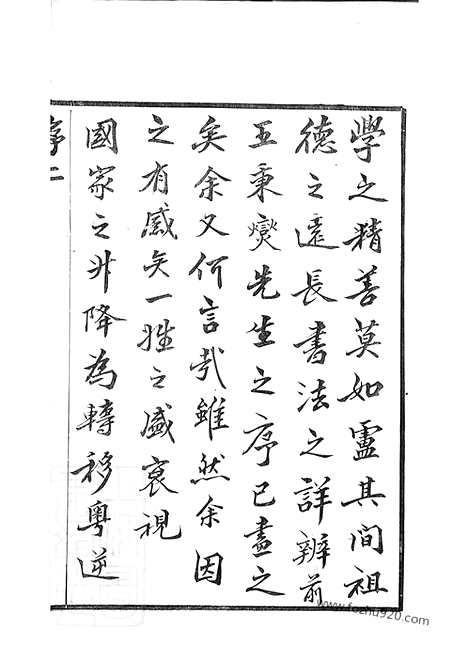 學之精善莫如盧其間祖
德之遠長書法之詳辨前
王秉燮先生之序已盡之
矣余又何言哉雖然余因
之有感矣一姓之盛衰視
國家之升降為轉移粵逆
序二
www.fozhu920.com